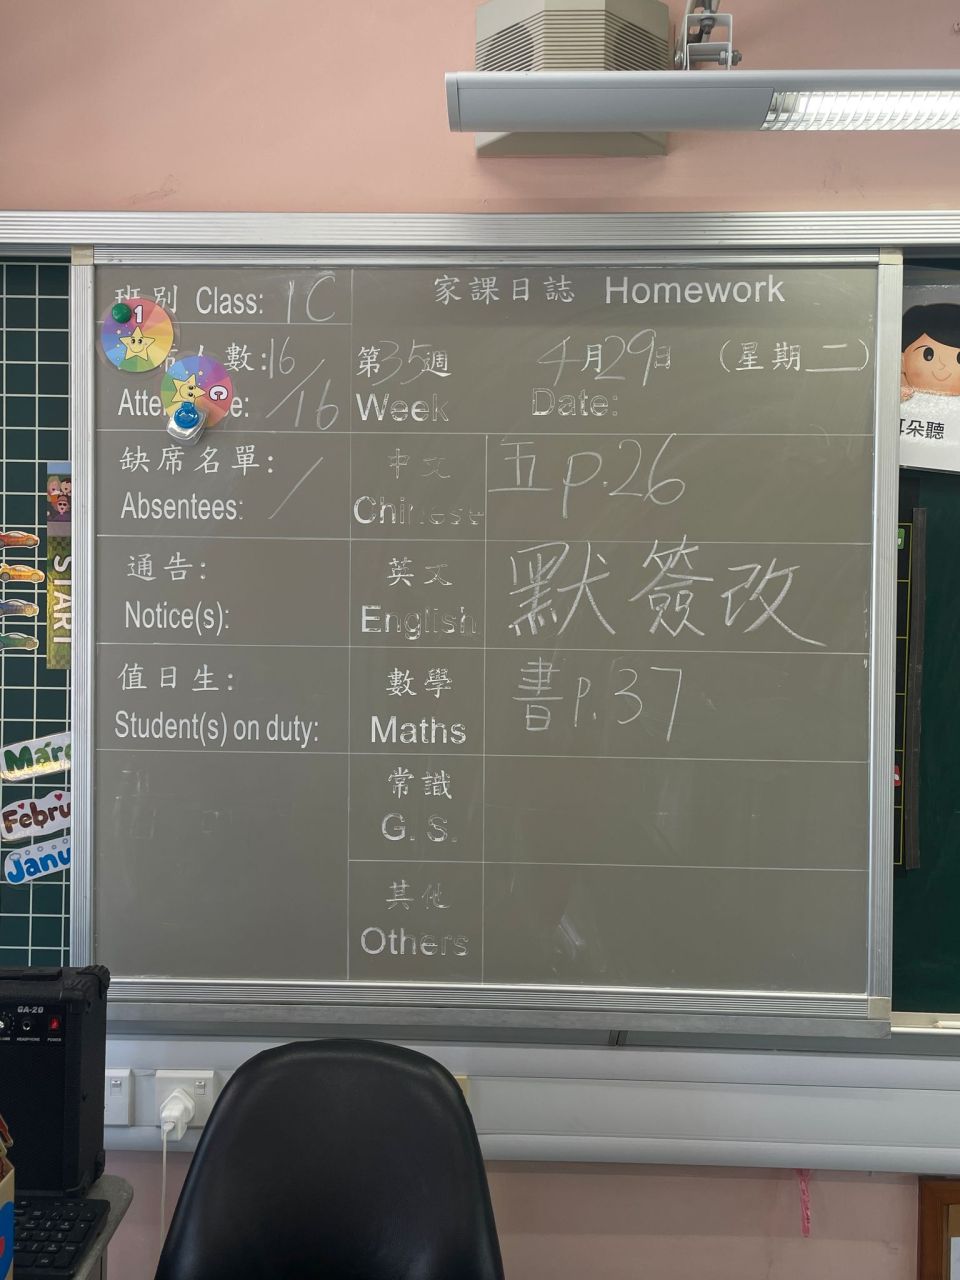 班別 Class: 1C
家課日誌 Homework
人數: 16/16
第35週
Week
4月29日 (星期二)
Date:
缺席名單: /
Absentees:
中文
Chinese
五 p.26
通告:
Notice(s):
英文
English
默簽改
值日生:
Student(s) on duty:
數學
Maths
書 p.37
常識
G. S.
其他
Others
1
C
耳朵聽
START
Febru
Janu
GA-20
HEADPHONE
POWER